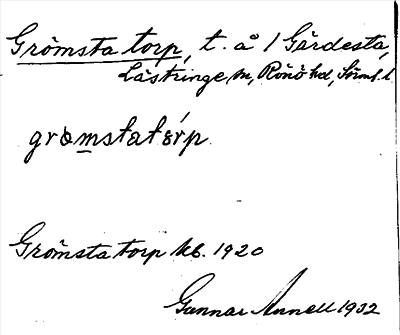 Grömsta torp, t. å 1 Gärdesta,
Lästringe sn, Rönö hd, Sörml. l.
grömstatårp
Grömsta torp Kb. 1920
Gunnar Annell 1932